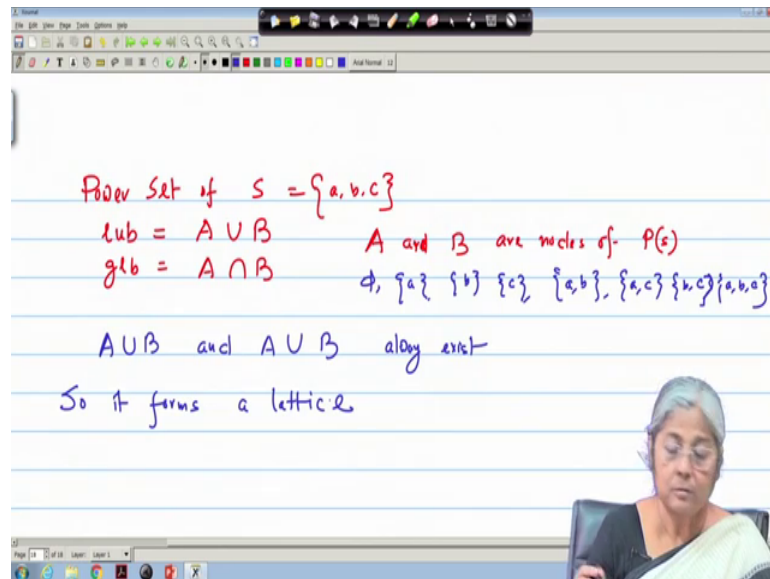 Journal
File Edit View Page Tools Options Help
Arial Normal 12
Power Set of S = {a, b, c}
lub = A ∪ B
glb = A ∩ B
A and B are nodes of P(s)
ϕ, {a} {b} {c}, {a,b}, {a,c} {b,c} {a,b,c}
A∪B and A ∪ B alway exist
So it forms a lattice
Page 18 of 18 Layer: Layer 1